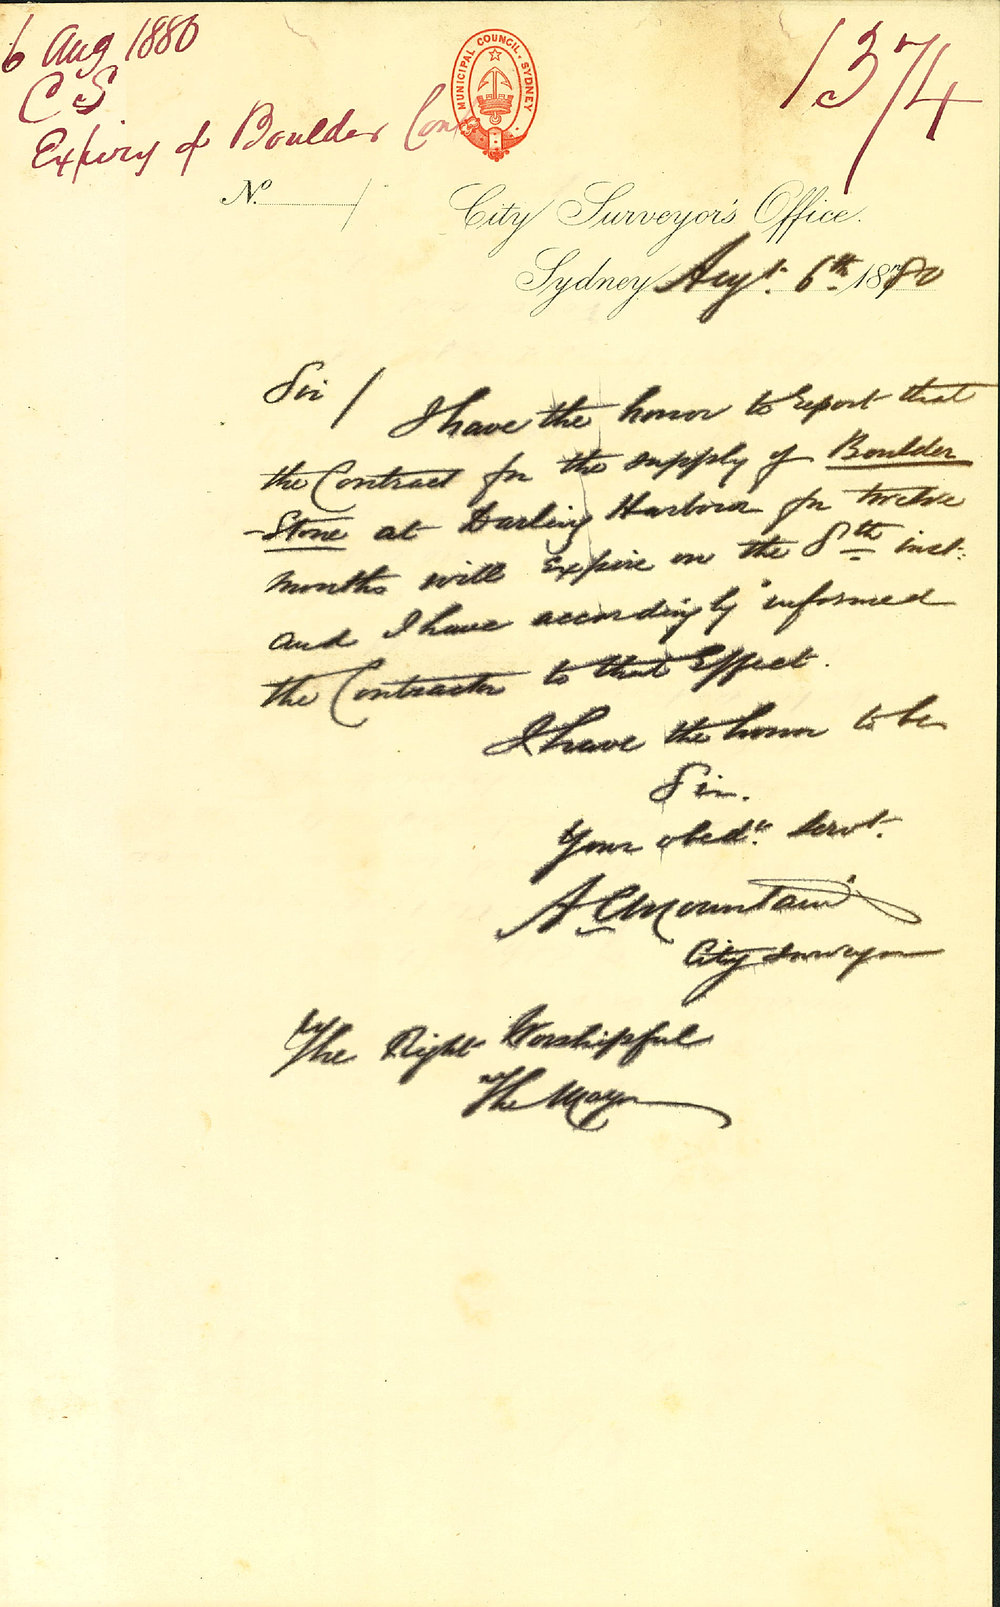 6 Aug 1880
C S
Expiry of Boulder Con
1374
MUNICIPAL COUNCIL. SYDNEY
No. /
City Surveyor's Office.
Sydney Augt. 6th 1880
Sir /
I have the honor to report that
the Contract for the supply of Boulder
-Stone at Darling Harbour for twelve
months will expire on the 8th inst:
and I have accordingly informed
the Contractor to that Effect.
I have the honor to be
Sir.
Your obedt. servt.
A C Mountain
City Surveyor
The Right Worshipful
The Mayor